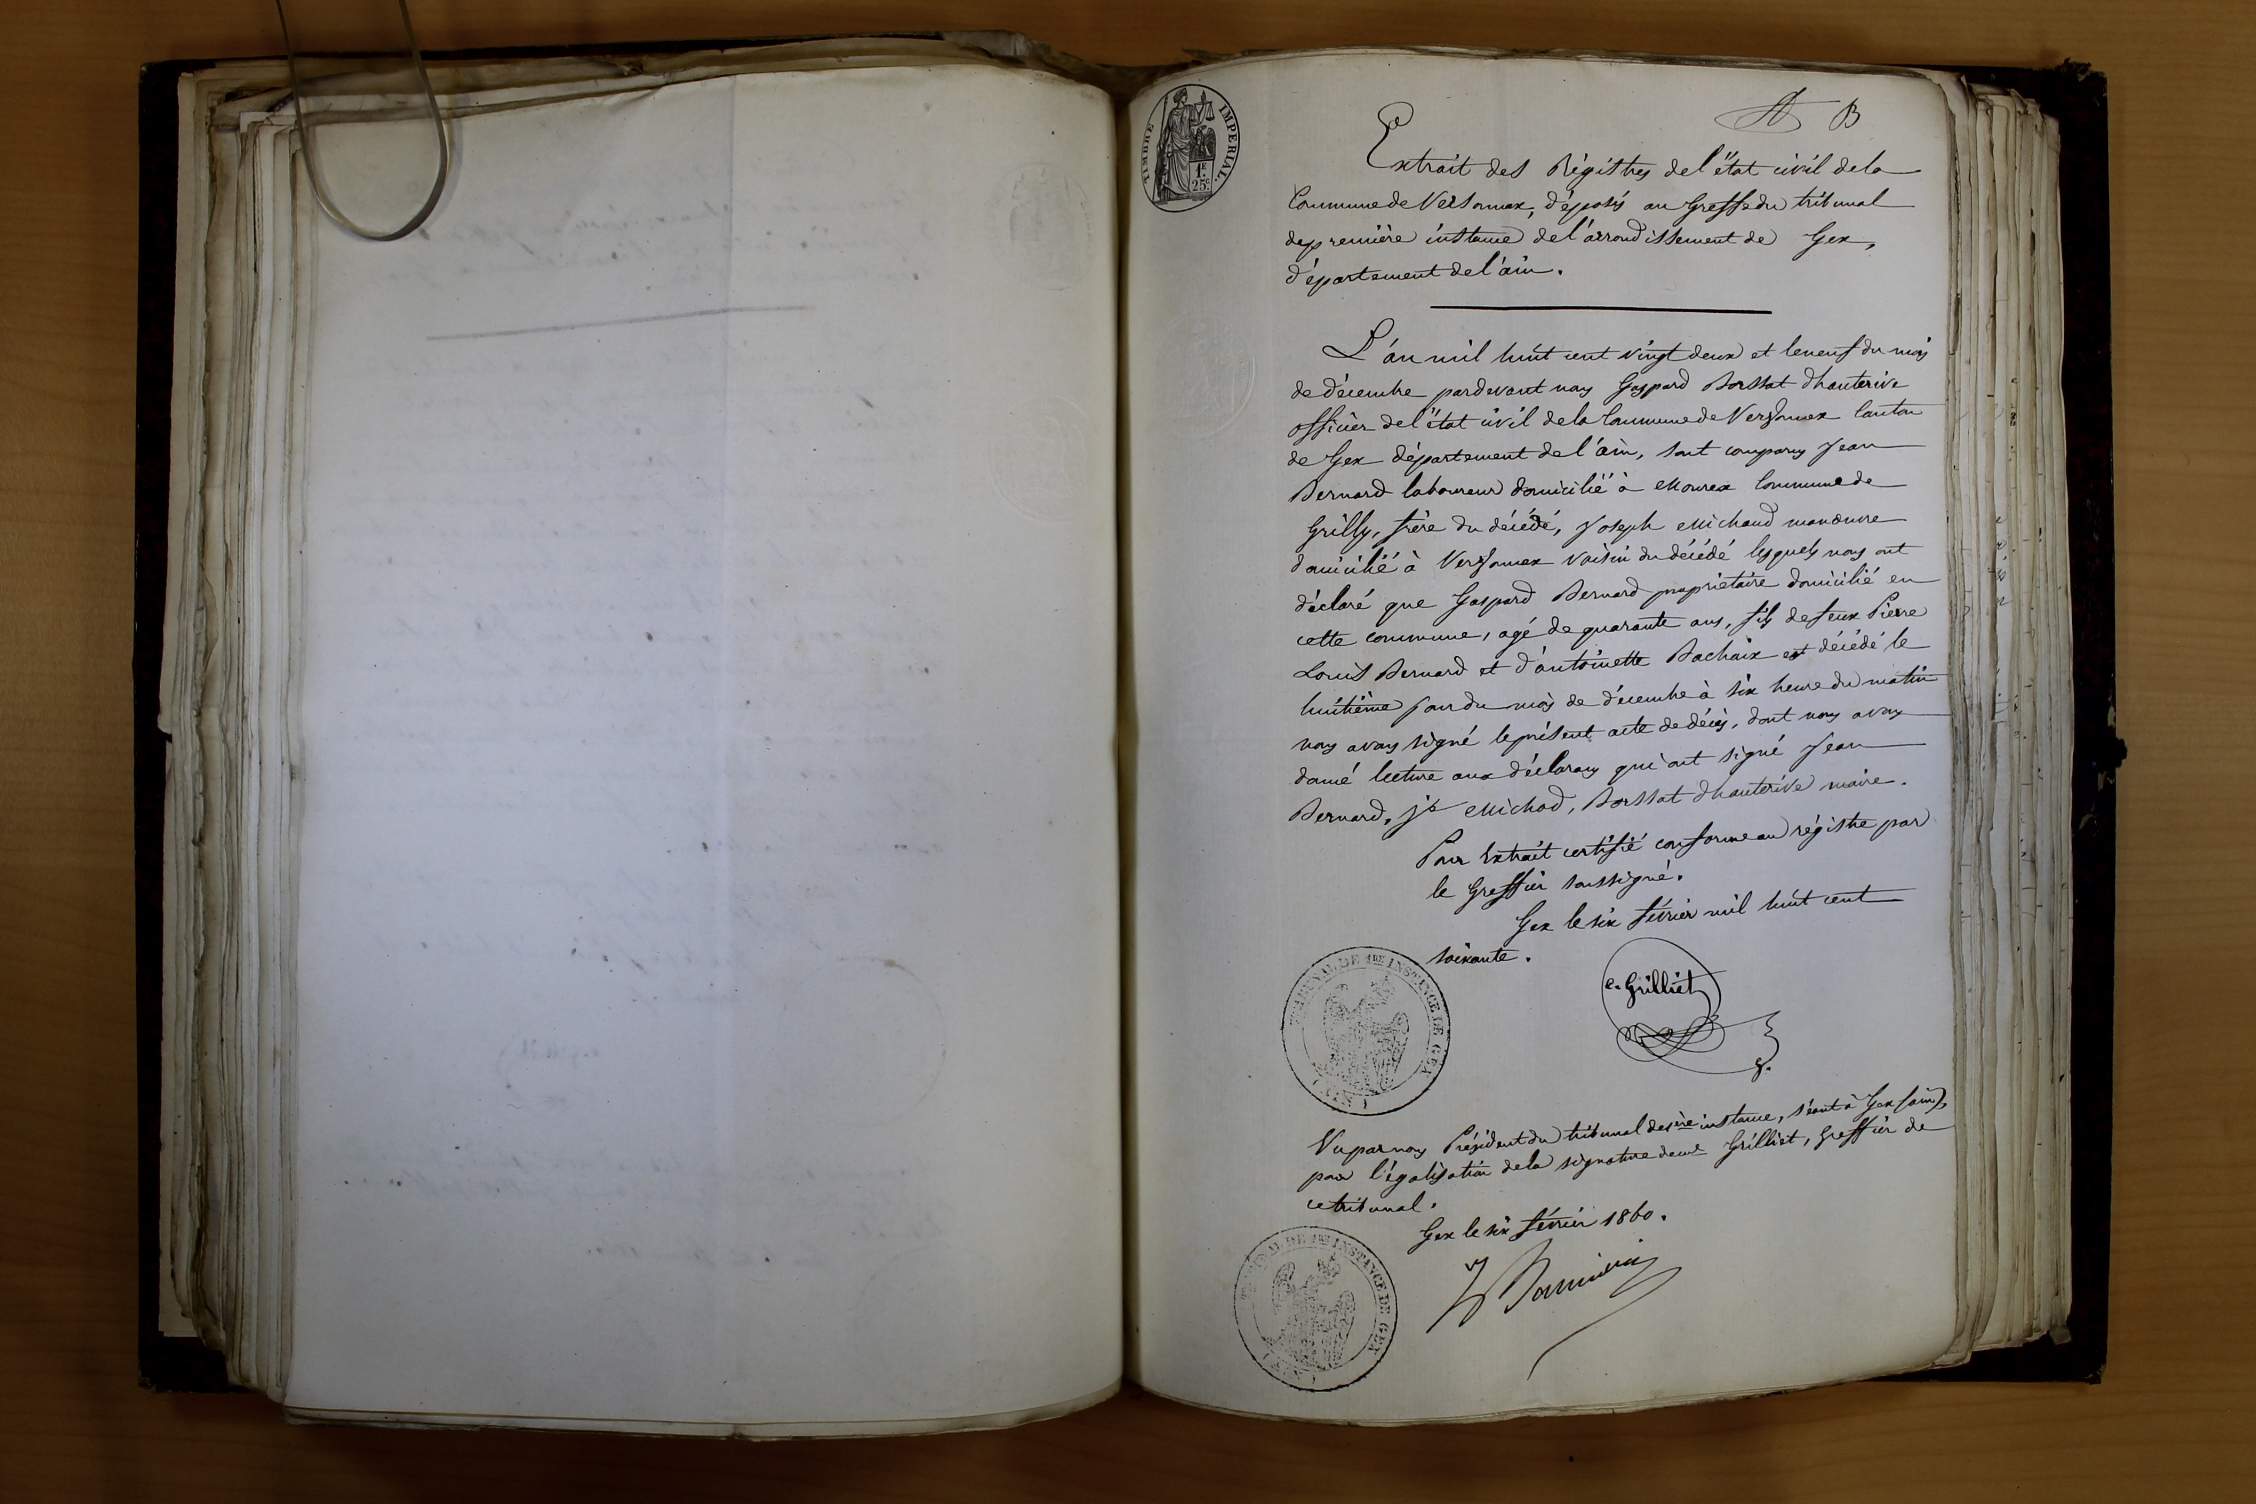 TIMBRE IMPERIAL.
1F. 25C.
B
Extrait des Régistres de l'état civil de la
Commune de Versonnex, déposés au Greffe du tribunal
de première instance de l'arrondissement de Gex,
département de l'ain.
L'an mil huit cent vingt deux et le neuf du mois
de décembre pardevant nous Gaspard Borssat d'hauterive
officier de l'état civil de la Commune de Versonnex Canton
de Gex département de l'ain, sont comparus Jean
Bernard laboureur domicilié à Mourex Commune de
Grilly, frère du décédé, Joseph Michaud manœuvre
domicilié à Versonnex voisin du décédé lesquels nous ont
déclaré que Gaspard Bernard propriétaire domicilié en
cette commune, agé de quarante ans, fils de feux Pierre
Louis Bernard et d'antoinette Bachaix est décédé le
huitième jour du mois de décembre à six heure du matin
nous avons signé le présent acte de décès, dont nous avons
donné lecture aux déclarans qui ont signé Jean
Bernard, jh Michod, Borssat d'hauterive maire.
Pour Extrait certifié conforme au régistre par
le Greffier soussigné.
Gex le six février mil huit cent
soixante.
TRIBUNAL DE 1RE INSTANCE DE GEX
(AIN)
e. Grilliet
Vu par nous Président du tribunal de 1ère instance, séant à Gex (ain),
pour légalisation de la signature de Me Grilliet, Greffier de
ce tribunal.
Gex le six février 1860.
TRIBUNAL DE 1RE INSTANCE DE GEX
(AIN)